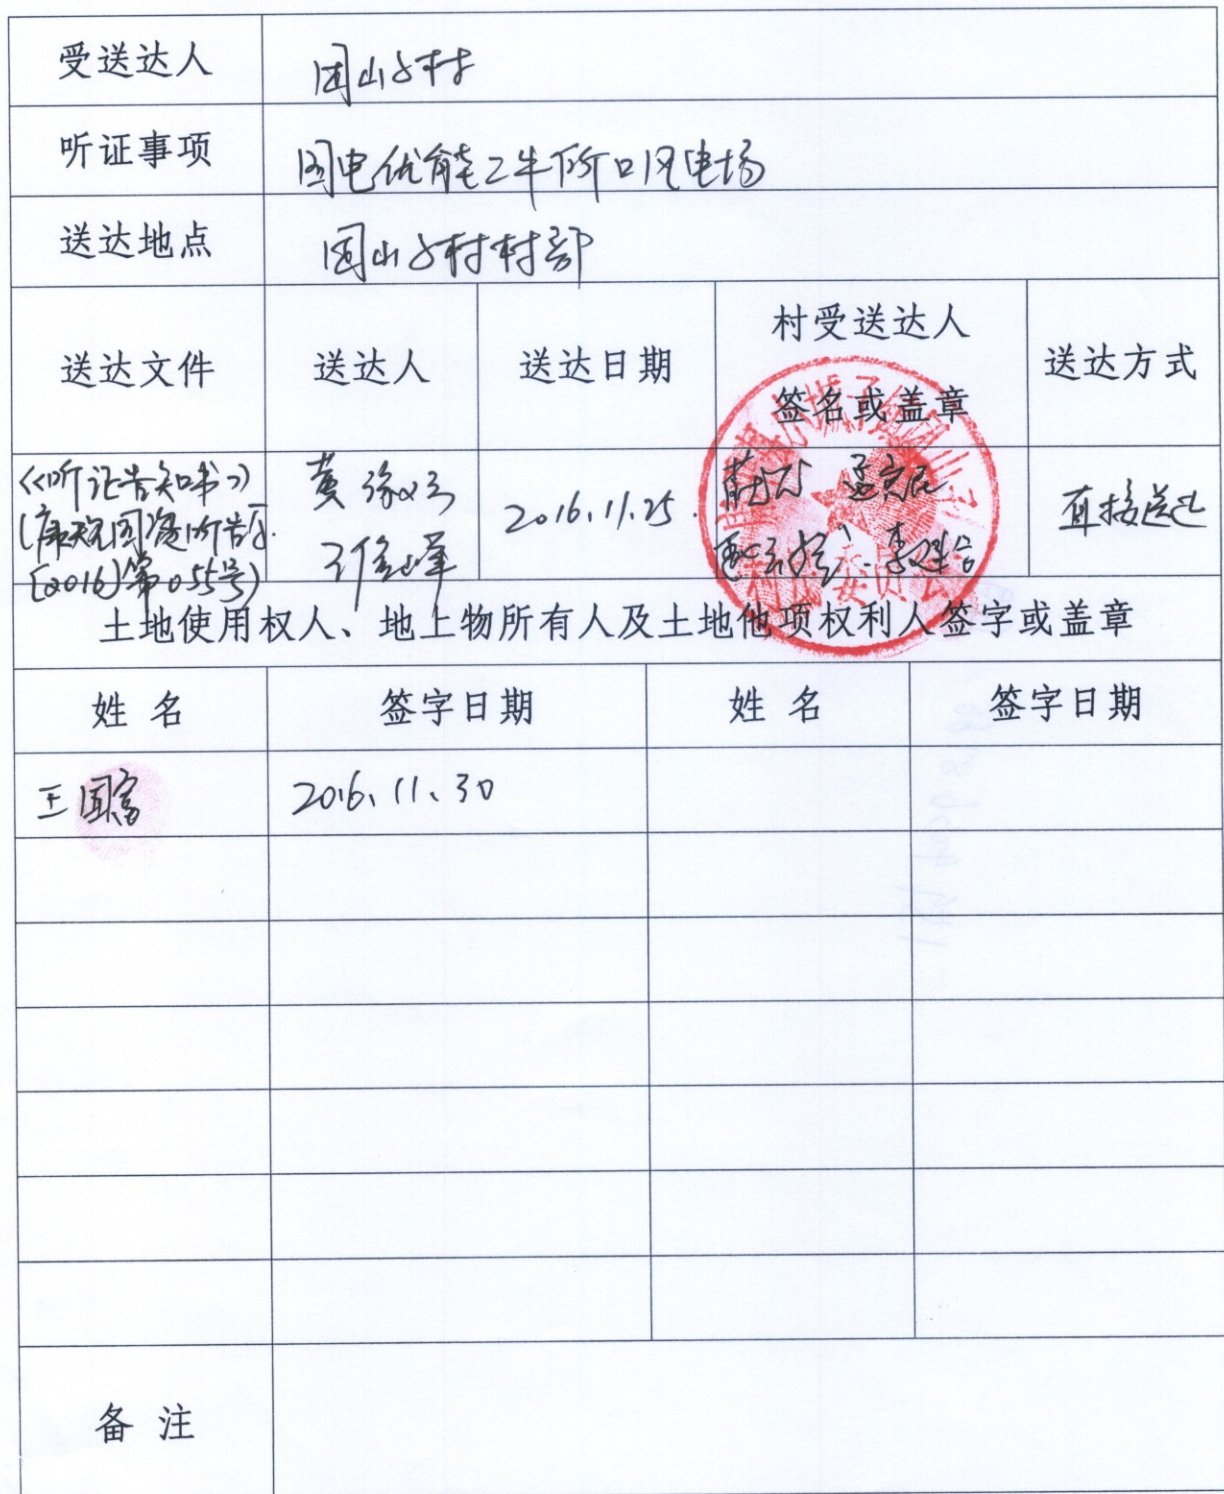 受送达人 团山子村
听证事项 国电优能二牛所口风电场
送达地点 团山子村村部
送达文件 送达人 送达日期 村受送达人 签名或盖章 送达方式
《听证告知书》
[2016]第055号)
2016.11.25.
直接送达
土地使用权人、地上物所有人及土地他项权利人签字或盖章
姓名 签字日期 姓名 签字日期
王国富 2016.11.30
备注